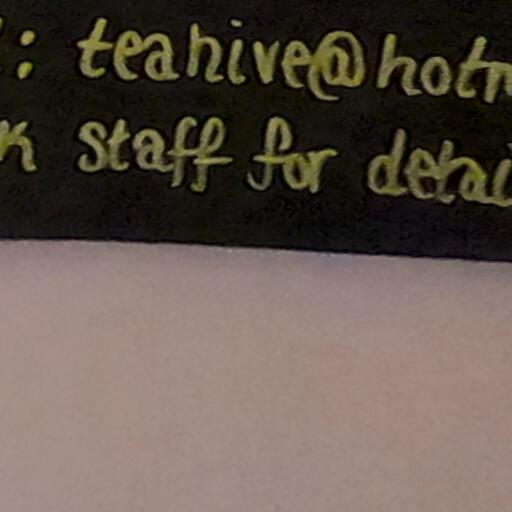 : teahive@hotm
k staff for detai